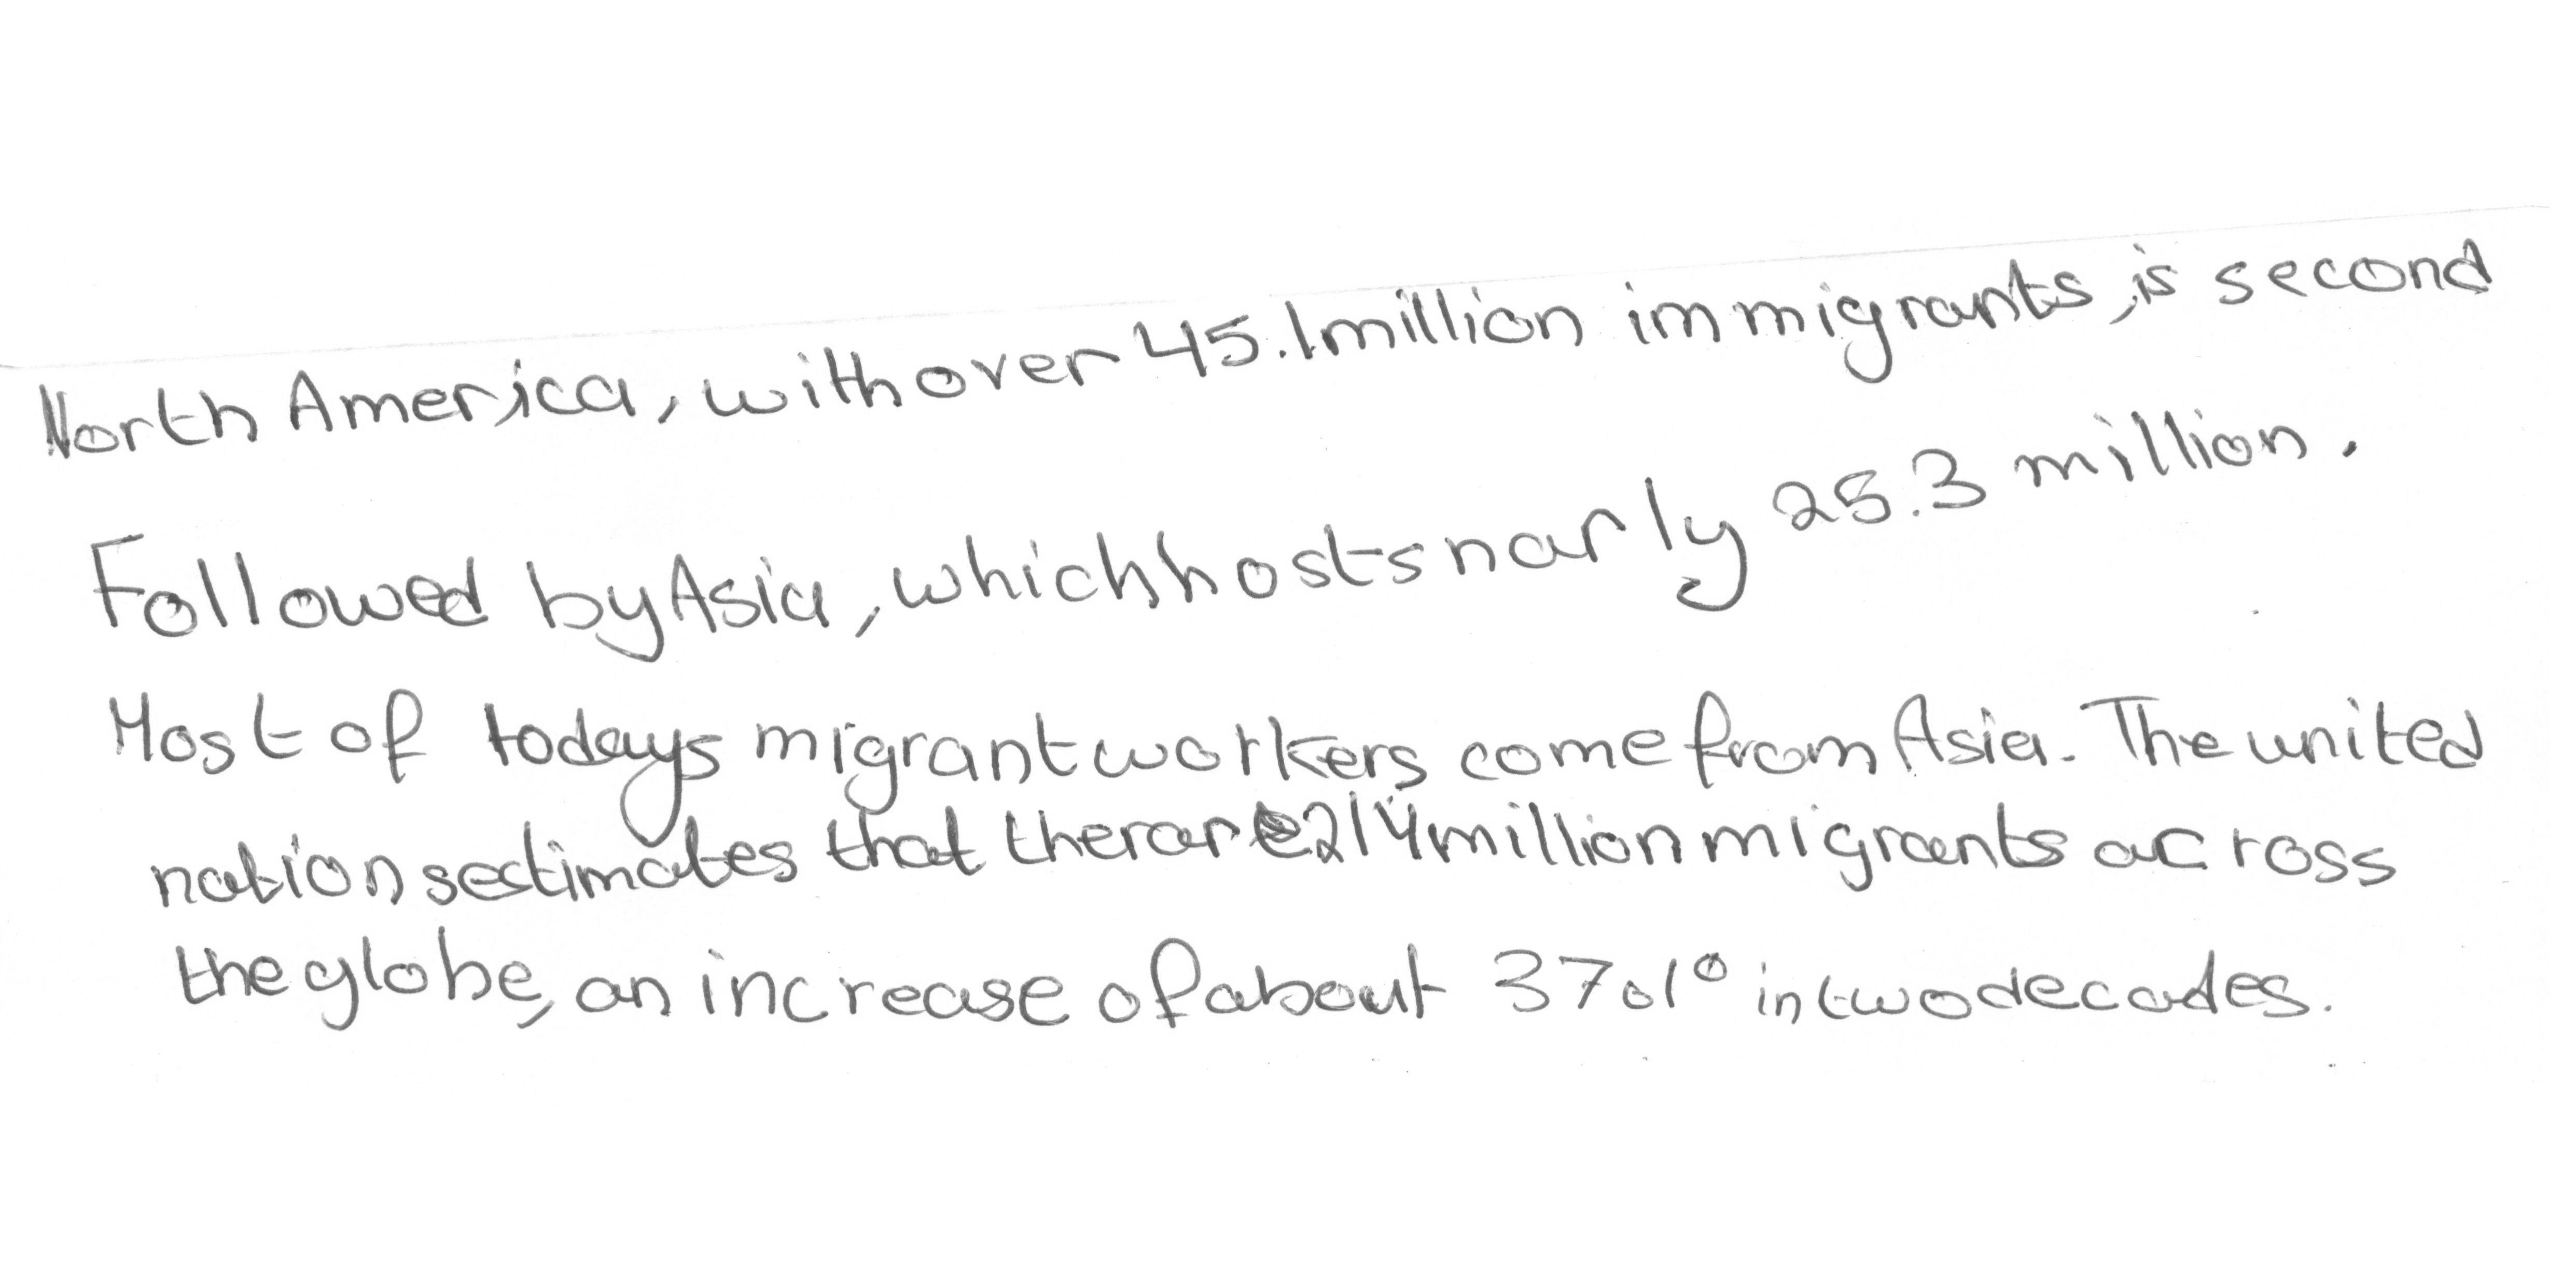 North America, with over 45.1 million immigrants, is second
Followed by Asia, which hosts narly 25.3 million.
Most of todays migrant workers come from Asia. The united
nations estimates that ther are 214 million migrants across
the globe, an increase of about 37% in two decades.